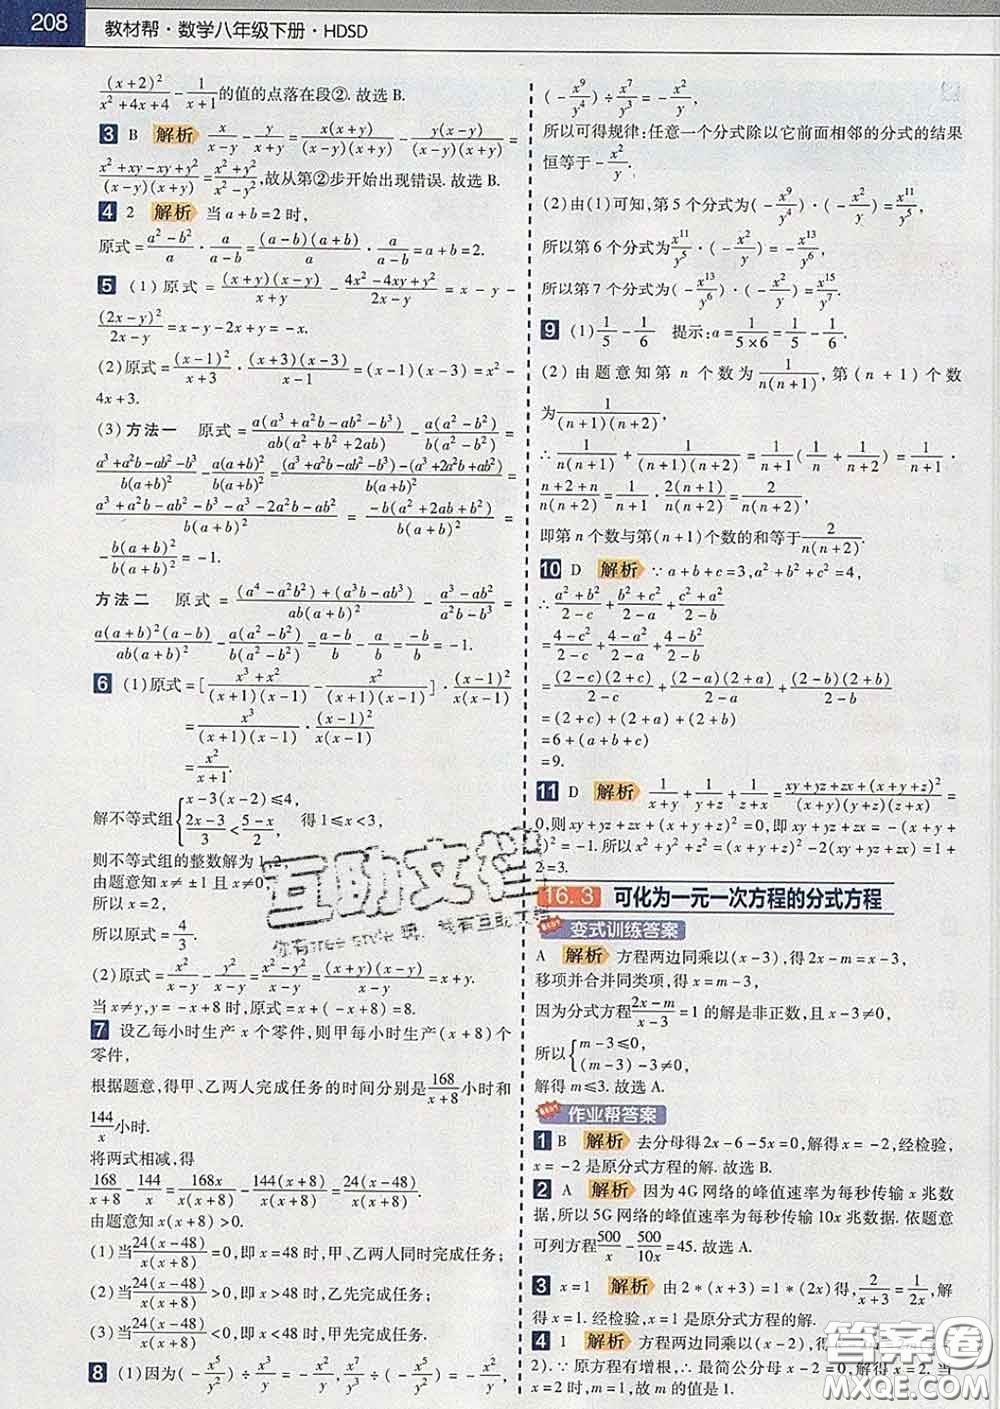 208 教材帮·数学八年级下册·HDSD
(x+2)²/(x²+4x+4) - 1/(x+1)的值的点落在段②. 故选 B.
3 B 解析 x/(x-y) - y/(x+y) = x(x+y)/((x-y)(x+y)) - y(x-y)/((x-y)(x+y)) =
(x²+xy-xy+y²)/((x-y)(x+y)) = (x²+y²)/(x²-y²), 故从第②步开始出现错误. 故选 B.
4 2 解析 当 a+b=2 时,
原式 = (a²-b²)/a · a/(a-b) = (a-b)(a+b)/a · a/(a-b) = a+b = 2.
5 (1) 原式 = (x+y)(x-y)/(x+y) - (4x²-4xy+y²)/(2x-y) = x-y-
(2x-y)²/(2x-y) = x-y-2x+y = -x.
(2) 原式 = (x-1)²/(x+3) · (x+3)(x-3)/(x-1) = (x-1)(x-3) = x²-
4x+3.
(3) 方法一 原式 = a(a³+a²b-ab²-b³)/(ab(a²+b²+2ab)) - a(a²-b²)/(b(a²-b²)) =
(a³+a²b-ab²-b³)/(b(a+b)²) - a(a²-b²)/(b(a²-b²)) = ((a³+a²b-ab²-b³)-(a³+2a²b+ab²))/(b(a+b)²) =
(a³+a²b-ab²-b³-a³-2a²b-ab²)/(b(a+b)²) = -b(a²+2ab+b²)/(b(a+b)²) =
-b(a+b)²/(b(a+b)²) = -1.
方法二 原式 = ((a⁴-a²b²)+(a³b-ab³))/(ab(a+b)²) - (a³-ab²)/(a²b-b³) =
a(a+b)²(a-b)/(ab(a+b)²) - a(a²-b²)/(b(a²-b²)) = (a-b)/b - a/b = -b/b = -1.
6 (1) 原式 = [(x³+x²)/((x+1)(x-1)) - x²/((x+1)(x-1))] · (x-1)²/(x(x-1))
= x³/((x+1)(x-1)) · (x-1)²/(x(x-1))
= x²/(x+1).
解不等式组 { x-3(x-2)≤4, (2x-3)/3<(5-x)/2, 得 1≤x<3,
则不等式组的整数解为 1,2,
由题意知 x≠±1 且 x≠0,
所以 x=2,
所以原式 = 4/3.
(2) 原式 = x²/(x-y) - y²/(x-y) = (x²-y²)/(x-y) = (x+y)(x-y)/(x-y) = x+y.
当 x≠y, y=-x+8 时, 原式 = x+(-x+8) = 8.
7 设乙每小时生产 x 个零件, 则甲每小时生产 (x+8) 个
零件,
根据题意, 得甲、乙两人完成任务的时间分别是 168/(x+8) 小时和
144/x 小时.
将两式相减, 得
168/(x+8) - 144/x = 168x/(x(x+8)) - 144(x+8)/(x(x+8)) = 24(x-48)/(x(x+8)).
由题意知 x(x+8)>0.
(1) 当 24(x-48)/(x(x+8)) = 0, 即 x=48 时, 甲、乙两人同时完成任务;
(2) 当 24(x-48)/(x(x+8)) > 0, 即 x>48 时, 乙先完成任务;
(3) 当 24(x-48)/(x(x+8)) < 0, 即 x<48 时, 甲先完成任务.
8 (1) 因为 (-x⁵/y²) ÷ x³/y = -x²/y, x⁷/y³ ÷ (-x⁵/y²) = -x²/y,
(-x⁹/y⁴) ÷ x⁷/y³ = -x²/y,
所以可得规律: 任意一个分式除以它前面相邻的分式的结果
恒等于 -x²/y.
(2) 由 (1) 可知, 第 5 个分式为 (-x⁹/y⁴) · (-x²/y) = x¹¹/y⁵,
所以第 6 个分式为 x¹¹/y⁵ · (-x²/y) = -x¹³/y⁶,
所以第 7 个分式为 (-x¹³/y⁶) · (-x²/y) = x¹⁵/y⁷.
9 (1) 1/5 - 1/6 提示: a = 1/(5×6) = 1/5 - 1/6.
(2) 由题意知第 n 个数为 1/(n(n+1)), 第 (n+1) 个数
为 1/((n+1)(n+2)),
∴ 1/(n(n+1)) + 1/((n+1)(n+2)) = 1/(n+1) (1/n + 1/(n+2)) = 1/(n+1) ·
(n+2+n)/(n(n+2)) = 1/(n+1) · 2(n+1)/(n(n+2)) = 2/(n(n+2)),
即第 n 个数与第 (n+1) 个数的和等于 2/(n(n+2)).
10 D 解析 ∵ a+b+c=3, a²+b²+c²=4,
∴ (a²+b²)/(2-c) + (b²+c²)/(2-a) + (c²+a²)/(2-b)
= (4-c²)/(2-c) + (4-a²)/(2-a) + (4-b²)/(2-b)
= (2-c)(2+c)/(2-c) + (2-a)(2+a)/(2-a) + (2-b)(2+b)/(2-b)
= (2+c)+(2+a)+(2+b)
= 6+(a+b+c)
= 9.
11 D 解析 1/(x+y) + 1/(y+z) + 1/(z+x) = (xy+yz+zx+(x+y+z)²)/((x+y)(y+z)(z+x)) =
0, 则 xy+yz+zx+(x+y+z)²=0, 即 xy+yz+zx=-(x+y+
z)²=-1. 所以 x²+y²+z²=(x+y+z)²-2(xy+yz+zx)=1+
2=3.
16.3 可化为一元一次方程的分式方程
变式训练答案
A 解析 方程两边同乘以 (x-3), 得 2x-m=x-3,
移项并合并同类项, 得 x=m-3,
因为分式方程 (2x-m)/(x-3) = 1 的解是非正数, 且 x-3≠0,
所以 { m-3≤0, (m-3)-3≠0,
解得 m≤3. 故选 A.
作业帮答案
1 B 解析 去分母得 2x-6-5x=0, 解得 x=-2, 经检验,
x=-2 是原分式方程的解. 故选 B.
2 A 解析 因为 4G 网络的峰值速率为每秒传输 x 兆数
据, 所以 5G 网络的峰值速率为每秒传输 10x 兆数据. 依题意
可列方程 500/x - 500/10x = 45. 故选 A.
3 x=1 解析 由 2*(x+3)=1*(2x) 得, 2/(x+3) = 1/2x, 解
得 x=1. 经检验, x=1 是原分式方程的解.
4 1 解析 方程两边同乘以 (x-2), 得
2). ∵ 原方程有增根, ∴ 最简公分母 x-2=0, 解得 x=2. 当
x=2 时, m=1, 故 m 的值是 1.
互助文档
你有free style 嘿, 我有互助文档
答案圈
MXQE.COM